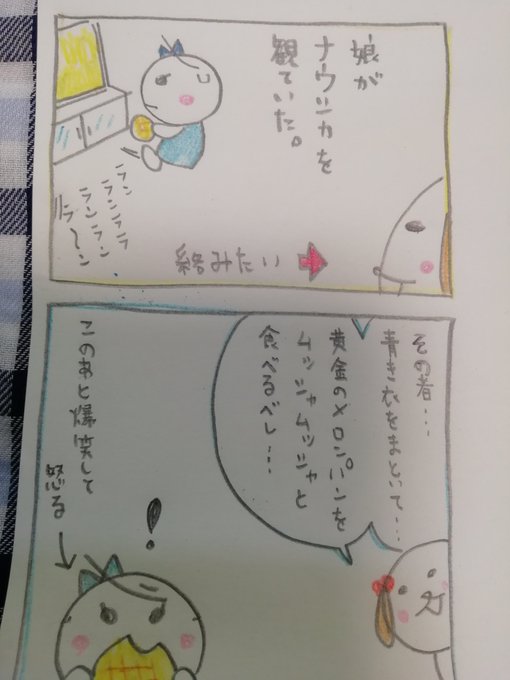 娘が
ナウシカを
観ていた。
ランランララ
ランランラン
絡みたい
その者…
青き衣をまといて…
黄金のメロンパンを
ムッシャムッシャと
食べるべし…
!
このあと爆笑して
怒る